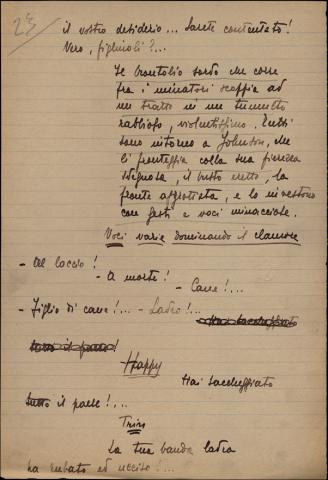 23
il vostro desiderio... Sarete contentato!
Vero, figliuoli?...
Il brontolio sordo che corre
fra i minatori scoppia ad
un tratto in un tumulto
rabbioso, violentissimo. Tutti
sono intorno a Johnson, che
li fronteggia colla sua fierezza
sdegnosa, il busto eretto, la
fronte aggrottata, e lo investono
con gesti e voci minacciose.
Voci varie dominando il clamore
- Al laccio!
- A morte!
- Cane!...
- Figlio di cane!... - Ladro!...
Hai saccheggiato
tutto il paese!
Happy
Hai saccheggiato
tutto il paese!...
Trin
La tua banda ladra
ha rubato ed ucciso!...